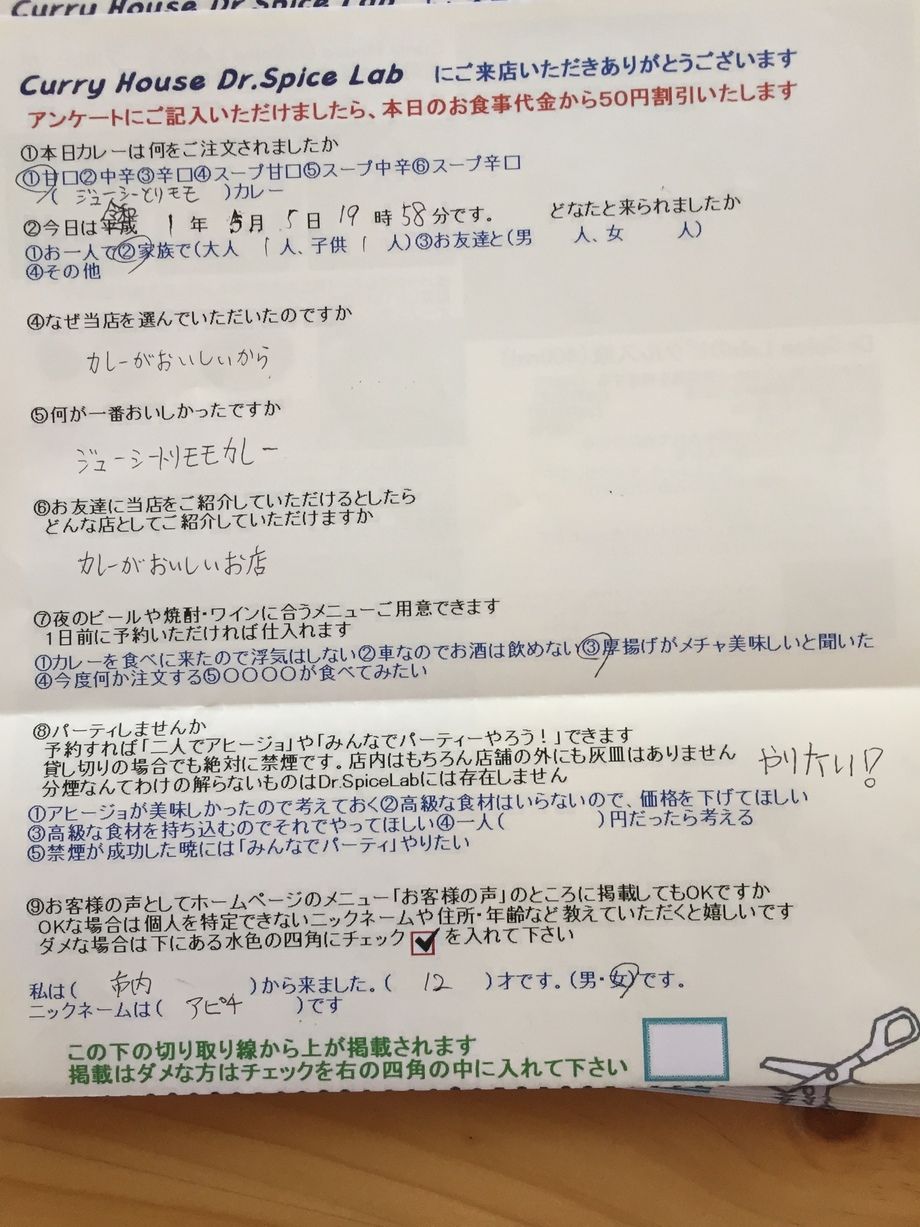 Curry House Dr.Spice Lab
Curry House Dr.Spice Lab にご来店いただきありがとうございます
アンケートにご記入いただけましたら、本日のお食事代金から50円割引いたします
①本日カレーは何をご注文されましたか
①甘口②中辛③辛口④スープ甘口⑤スープ中辛⑥スープ辛口
( ジューシーとりモモ )カレー
令和
②今日は平成 1 年 5月 5日 19 時 58分です。 どなたと来られましたか
①お一人で②家族で(大人 1 人、子供 1 人)③お友達と(男 人、女 人)
④その他
④なぜ当店を選んでいただいたのですか
カレーがおいしいから
⑤何が一番おいしかったですか
ジューシートリモモカレー
⑥お友達に当店をご紹介していただけるとしたら
どんな店としてご紹介していただけますか
カレーがおいしいお店
⑦夜のビールや焼酎・ワインに合うメニューご用意できます
1日前に予約いただければ仕入れます
①カレーを食べに来たので浮気はしない②車なのでお酒は飲めない③厚揚げがメチャ美味しいと聞いた
④今度何か注文する⑤〇〇〇〇が食べてみたい
⑧パーティしませんか
予約すれば「二人でアヒージョ」や「みんなでパーティーやろう!」できます
貸し切りの場合でも絶対に禁煙です。店内はもちろん店舗の外にも灰皿はありません やりたい!
分煙なんてわけの解らないものはDr.SpiceLabには存在しません
①アヒージョが美味しかったので考えておく②高級な食材はいらないので、価格を下げてほしい
③高級な食材を持ち込むのでそれでやってほしい④一人( )円だったら考える
⑤禁煙が成功した暁には「みんなでパーティ」やりたい
⑨お客様の声としてホームページのメニュー「お客様の声」のところに掲載してもOKですか
OKな場合は個人を特定できないニックネームや住所・年齢など教えていただくと嬉しいです
ダメな場合は下にある水色の四角にチェック を入れて下さい
私は( 市内 )から来ました。( 12 )才です。(男・女)です。
ニックネームは( アピチ )です
この下の切り取り線から上が掲載されます
掲載はダメな方はチェックを右の四角の中に入れて下さい